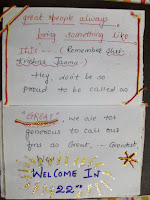 great people always
bring something like
It is -- (Remember Shri
Krishna Janma)
Hey, don't be so
proud to be called as
"GREAT" we are too
generous to call our
fns as Great, -- Greatest
WELCOME IN
22"